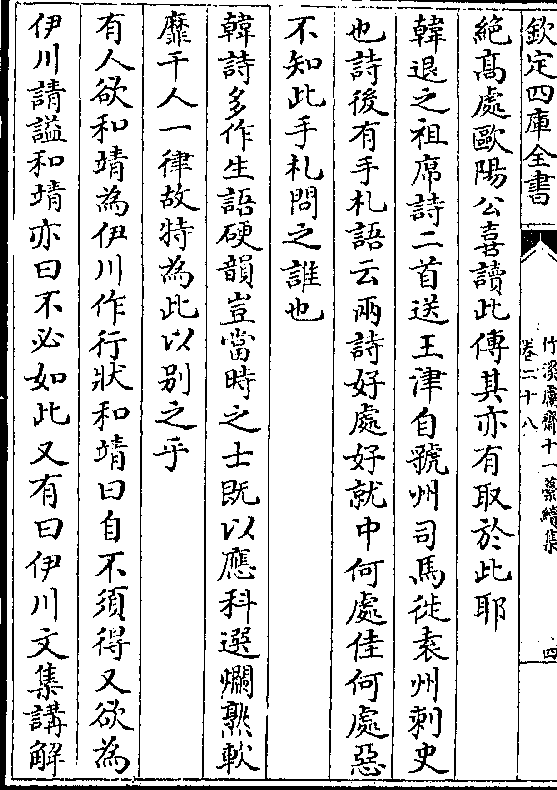 欽定四庫全書
竹溪鬳齋十一藁續集
卷二十八
四
絶髙處歐陽公喜讀此傳其亦有取於此耶
韓退之祖席詩二首送王津自虢州司馬徙袁州刺史
也詩後有手札語云兩詩好處好就中何處佳何處惡
不知此手札問之誰也
韓詩多作生語硬韻豈當時之士既以應科選爛熟軟
靡千人一律故特為此以别之乎
有人欲和靖為伊川作行狀和靖曰自不須得又欲為
伊川請諡和靖亦曰不必如此又有曰伊川文集講解